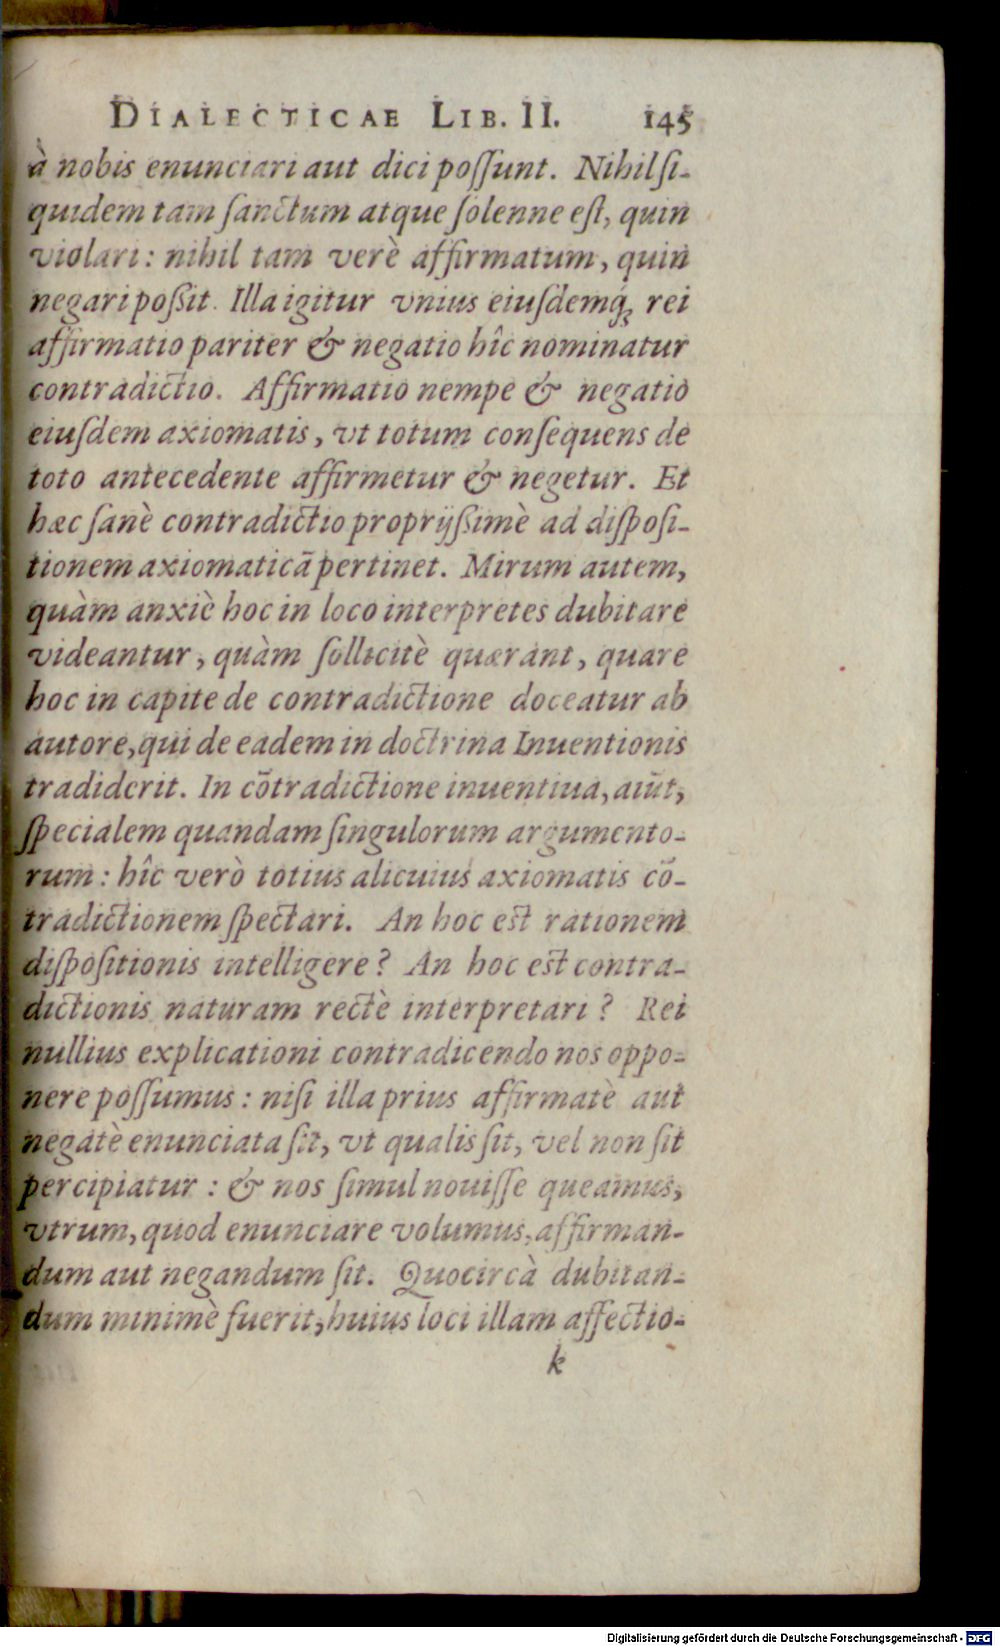 DIALECTICAE LIB. II. 145
à nobis enunciari aut dici poſſunt. Nihil ſi-
quidem tam ſanctum atque ſolenne eſt, quin
violari: nihil tam verè affirmatum, quin
negari poßit. Illa igitur vnius eiuſdemq́; rei
affirmatio pariter & negatio hîc nominatur
contradictio. Affirmatio nempe & negatio
eiuſdem axiomatis, vt totum conſequens de
toto antecedente affirmetur & negetur. Et
hæc ſanè contradictio proprijßimè ad diſpoſi-
tionem axiomaticā pertinet. Mirum autem,
quàm anxiè hoc in loco interpretes dubitare
videantur, quàm ſollicitè quærant, quare
hoc in capite de contradictione doceatur ab
autore, qui de eadem in doctrina Inuentionis
tradiderit. In cōtradictione inuentiua, aiūt,
ſpecialem quandam ſingulorum argumento-
rum: hîc verò totius alicuius axiomatis cō-
tradictionem ſpectari. An hoc est rationem
diſpoſitionis intelligere? An hoc est contra-
dictionis naturam rectè interpretari? Rei
nullius explicationi contradicendo nos oppo-
nere poſſumus: niſi illa prius affirmatè aut
negatè enunciata ſit, vt qualis ſit, vel non ſit
percipiatur: & nos ſimul nouiſſe queamus,
vtrum, quod enunciare volumus, affirman-
dum aut negandum ſit. Quocircà dubitan-
dum minimè fuerit, huius loci illam affectio-
k
Digitalisierung gefördert durch die Deutsche Forschungsgemeinschaft - DFG